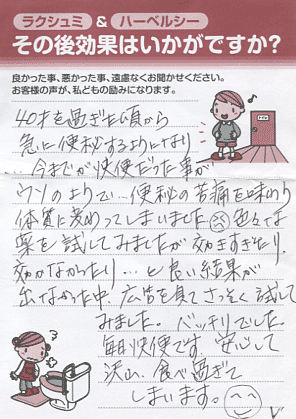 ラクシュミ & ハーベルシー
その後効果はいかがですか?
良かった事、悪かった事、遠慮なくお聞かせください。
お客様の声が、私どもの励みになります。
40才を過ぎた頃から
急に便秘するようになり
…今までが快便だった事が
ウソのようで…便秘の苦痛を味わう
体質に変わってしまいました 色々な
薬を試してみましたが 効きすぎたり、
効かなかったり…と良い結果が
出なかった中、広告を見てさっそく試して
みました。バッチリでした。
毎日快便です。安心して
沢山、食べ過ぎて
しまいます。